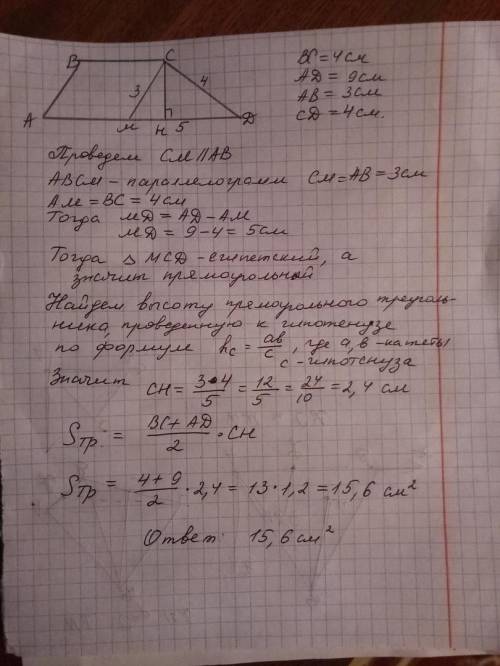 B
C
3
4
A
M
H
5
D
BC = 4 см
AD = 9 см
AB = 3 см
CD = 4 см.
Проведем CM || AB
ABCM - параллелограмм CM = AB = 3 см
AM = BC = 4 см
Тогда MD = AD - AM
MD = 9 - 4 = 5 см
Тогда △ MCD - египетский, а
значит прямоугольный
Найдем высоту прямоугольного треуголь-
ника, проведенную к гипотенузе
по формуле h_c = ab/c, где a, b - катеты
c - гипотенуза
Значит CH = 3·4/5 = 12/5 = 24/10 = 2,4 см
S тр. = (BC + AD)/2 · CH
S тр = (4 + 9)/2 · 2,4 = 13 · 1,2 = 15,6 см²
Ответ: 15,6 см²